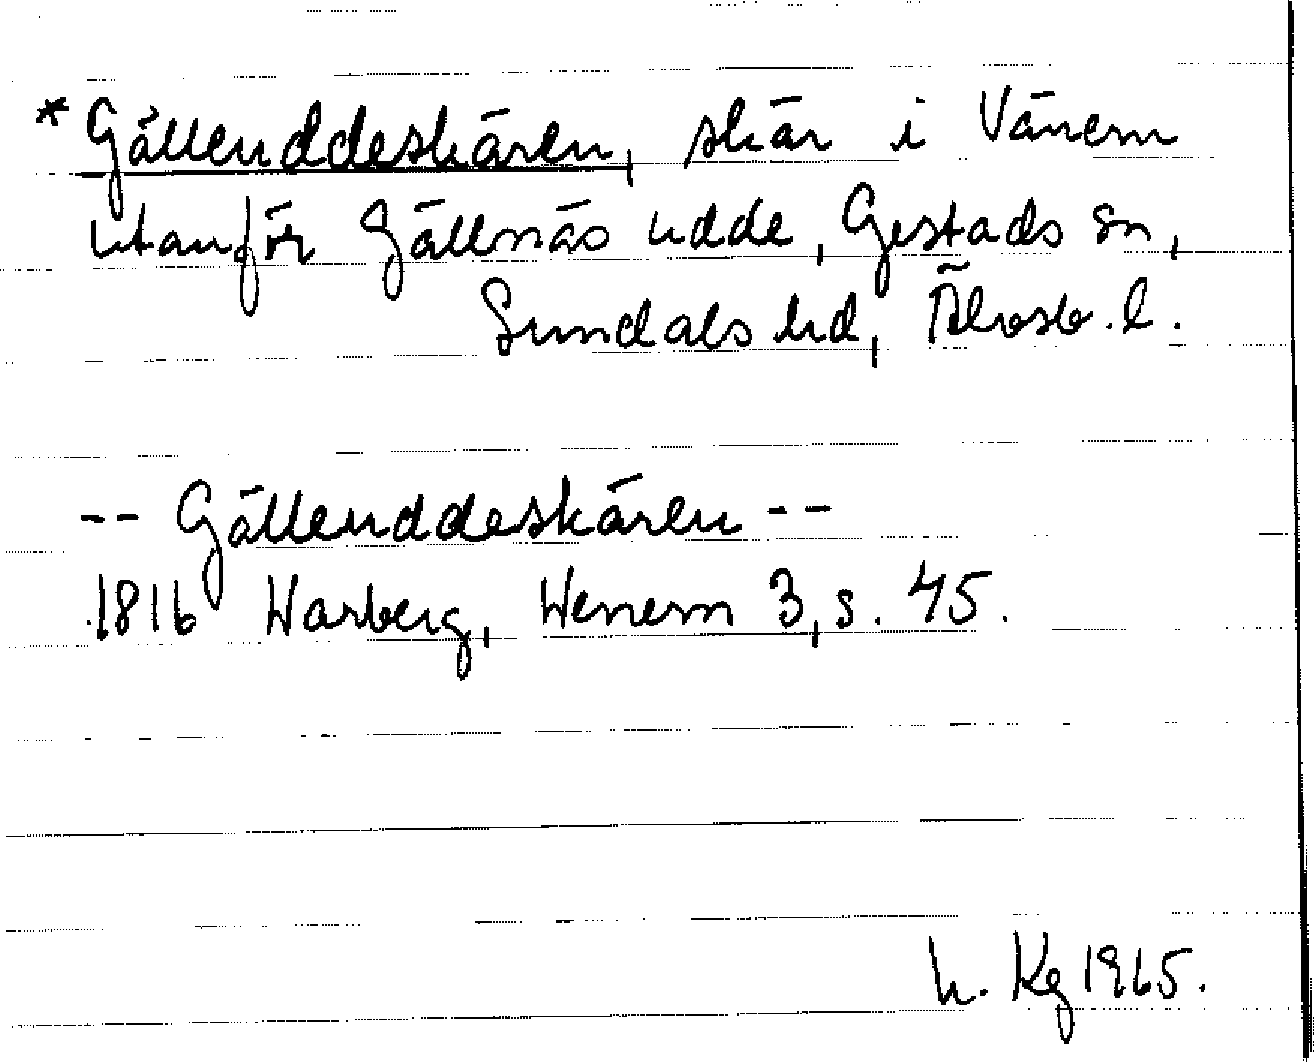 *Gälleuddeskären, skär i Vänern
utanför Gällnäs udde, Gestads sn,
Sundals hd, Älvsb. l.
-- Gälleuddeskären --
1816 Warberg, Wenern 3, s. 45.
L. Kg 1965.